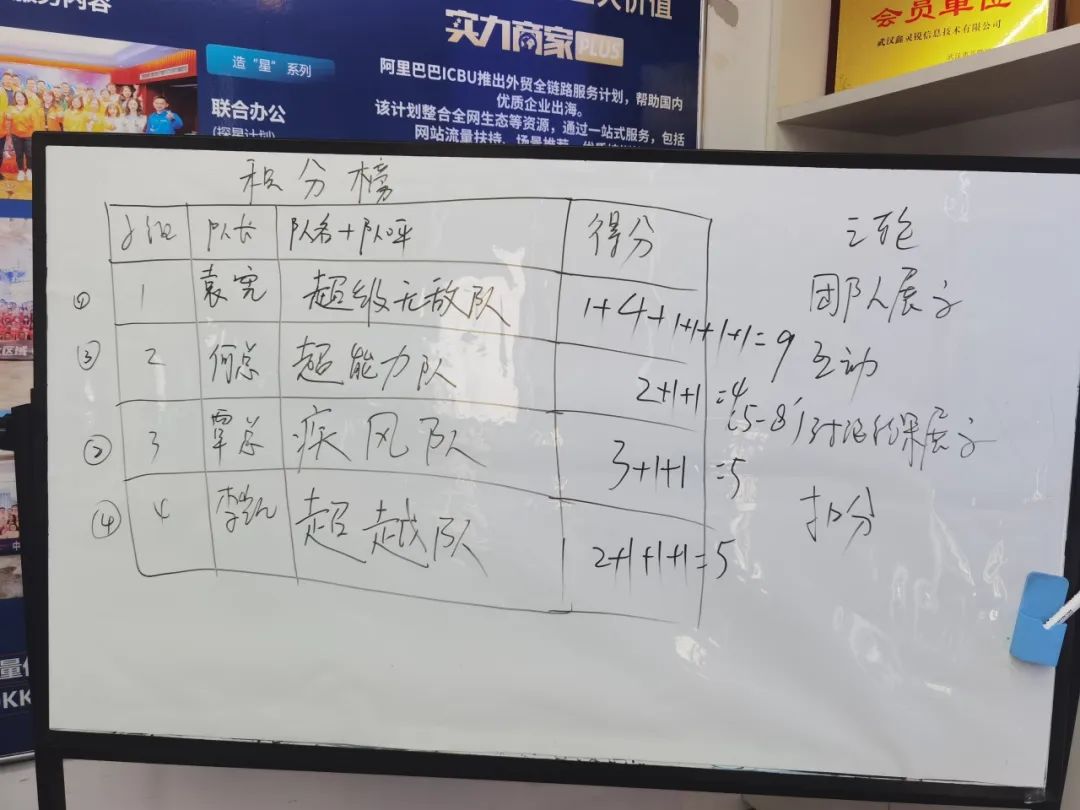 服务内容
大价值
实力商家PLUS
会员单位
武汉鑫灵锐信息技术有限公司
造“星”系列
阿里巴巴ICBU推出外贸全链路服务计划，帮助国内
优质企业出海。
联合办公
(探星计划)
该计划整合全网生态等资源，通过一站式服务，包括
网站流量扶持、场景推荐、优质
积分榜
组 队长 队名+队呼 得分
① 1 袁宪 超级无敌队 1+4+1+1+1+1=9
③ 2 何总 超能力队 2+1+1=4
② 3 覃总 疾风队 3+1+1=5
④ 4 李凯 超越队 2+1+1+1=5
三轮
团队展示
互动
(5-8')讨论结果展示
扣分